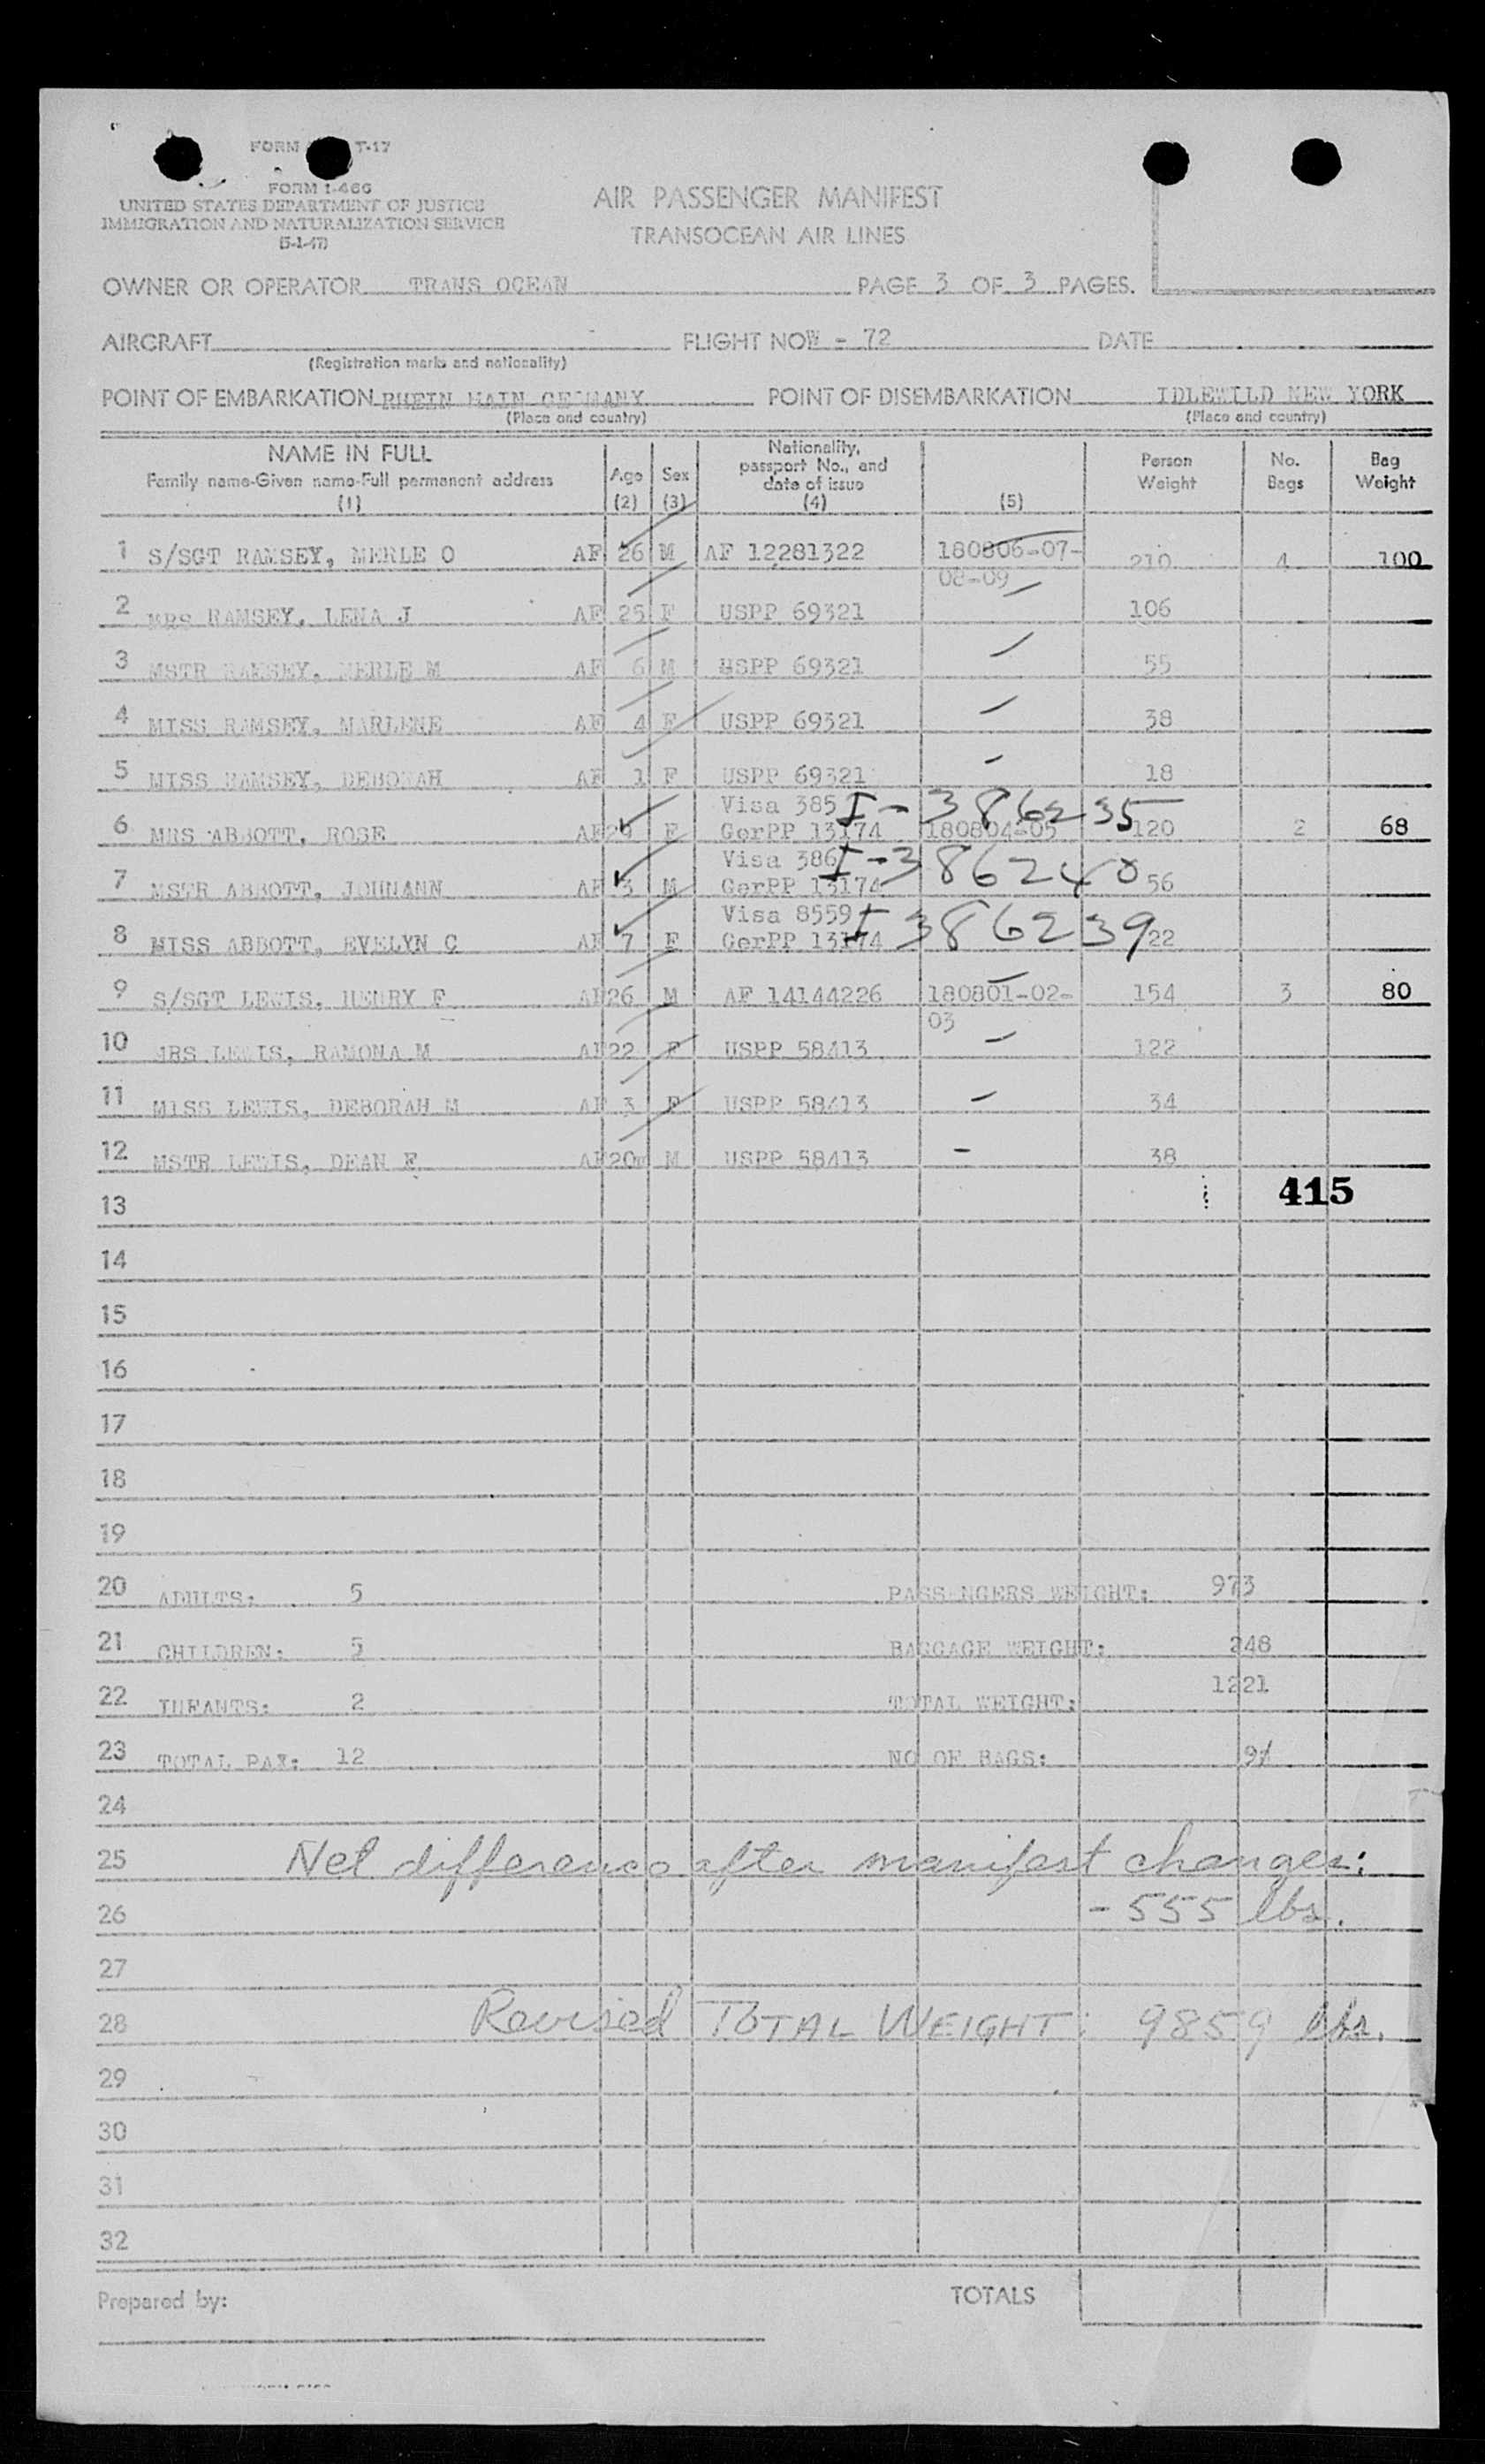 FORM T-17
FORM I-466
UNITED STATES DEPARTMENT OF JUSTICE
IMMIGRATION AND NATURALIZATION SERVICE
(5-1-47)
AIR PASSENGER MANIFEST
TRANSOCEAN AIR LINES
OWNER OR OPERATOR TRANS OCEAN PAGE 3 OF 3 PAGES.
AIRCRAFT FLIGHT NO W - 72 DATE
(Registration marks and nationality)
POINT OF EMBARKATION RHEIN MAIN GERMANY POINT OF DISEMBARKATION IDLEWILD NEW YORK
(Place and country) (Place and country)
NAME IN FULL
Family name-Given name-Full permanent address
(1)
Age
(2)
Sex
(3)
Nationality,
passport No., and
date of issue
(4)
(5)
Person
Weight
No.
Bags
Bag
Weight
1 S/SGT RAMSEY, MERLE O AF 26 M AF 12281322 180806-07- 210 4 100
08-09
2 MRS RAMSEY, LENA J AF 25 F USPP 69321 106
3 MSTR RAMSEY, MERLE M AF 6 M USPP 69321 55
4 MISS RAMSEY, MARLENE AF 4 F USPP 69321 38
5 MISS RAMSEY, DEBORAH AF 1 F USPP 69321 18
Visa 385 I-386235
6 MRS ABBOTT, ROSE AF 29 F GerPP 13174 180804-05 120 2 68
Visa 386 I-386240
7 MSTR ABBOTT, JOHNANN AF 3 M GerPP 13174 56
Visa 8559 I-386239
8 MISS ABBOTT, EVELYN C AF 7 F GerPP 13174 22
9 S/SGT LEWIS, HENRY F AF 26 M AF 14144226 180801-02- 154 3 80
03
10 MRS LEWIS, RAMONA M AF 22 F USPP 58413 122
11 MISS LEWIS, DEBORAH M AF 3 F USPP 58413 34
12 MSTR LEWIS, DEAN F AF 20m M USPP 58413 38
415
13
14
15
16
17
18
19
20 ADULTS: 5 PASSENGERS WEIGHT: 973
21 CHILDREN: 5 BAGGAGE WEIGHT: 248
22 INFANTS: 2 TOTAL WEIGHT: 1221
23 TOTAL PAX: 12 NO OF BAGS: 9
24
25 Net difference after manifest changes:
26 - 555 lbs.
27
28 Revised TOTAL WEIGHT: 9859 lbs.
29
30
31
32
Prepared by: TOTALS